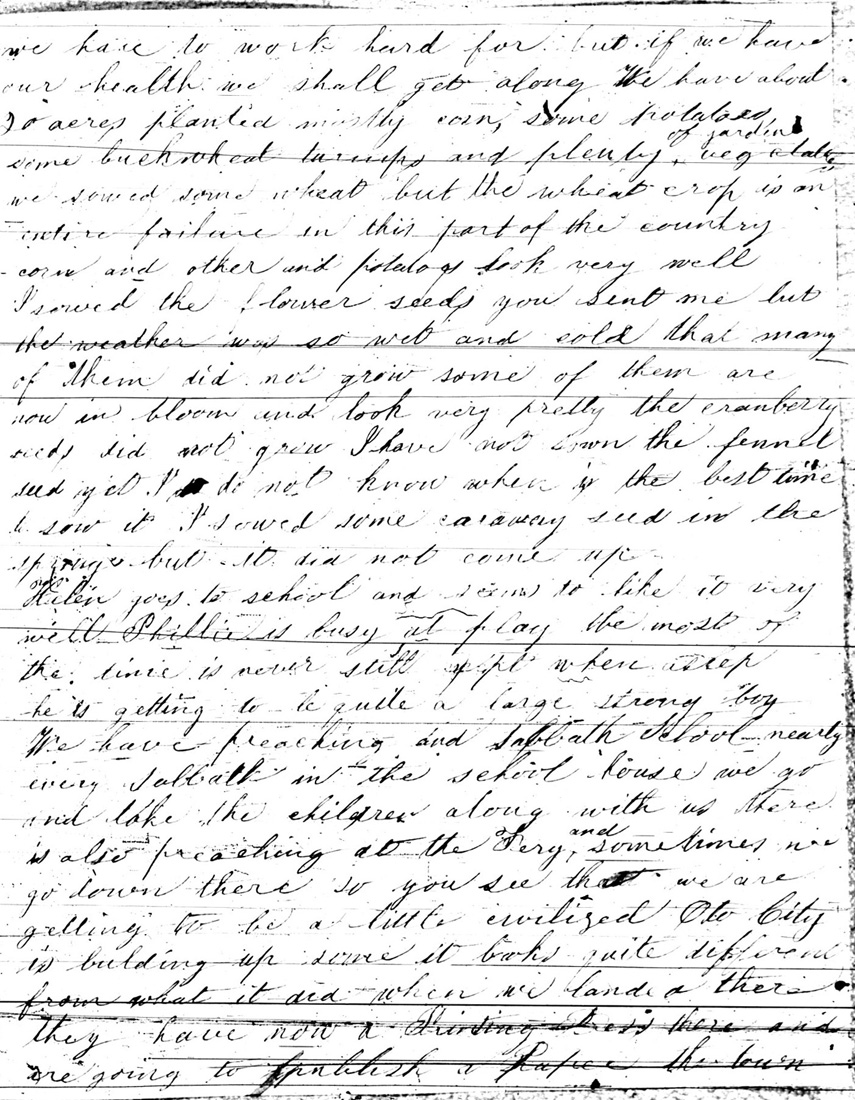 we have to work hard for but if we have
our health we shall get along We have about
acres planted mostly corn, some potatoes
some buckwheat turnips and plenty of garden vegetables
we sowed some wheat but the wheat crop is an
entire failure in this part of the country
corn and other and potatoes look very well
I sowed the flower seeds you sent me but
the weather was so wet and cold that many
of them did not grow some of them are
now in bloom and look very pretty the cranberry
seeds did not grow I have not sown the fennel
seed yet I do not know when is the best time
to sow it I sowed some caraway seed in the
spring but it did not come up
Helen goes to school and seems to like it very
well Phillie is busy at play the most of
the time is never still except when asleep
he is getting to be quite a large strong boy
We have preaching and Sabbath School nearly
every Sabbath in the school house we go
and take the children along with us there
is also preaching at the Fery, and sometimes we
go down there so you see that we are
getting to be a little civilized Oto City
is bulding up some it looks quite different
from what it did when we landed there
they have now a Printing Press there and
are going to publish a Paper the town